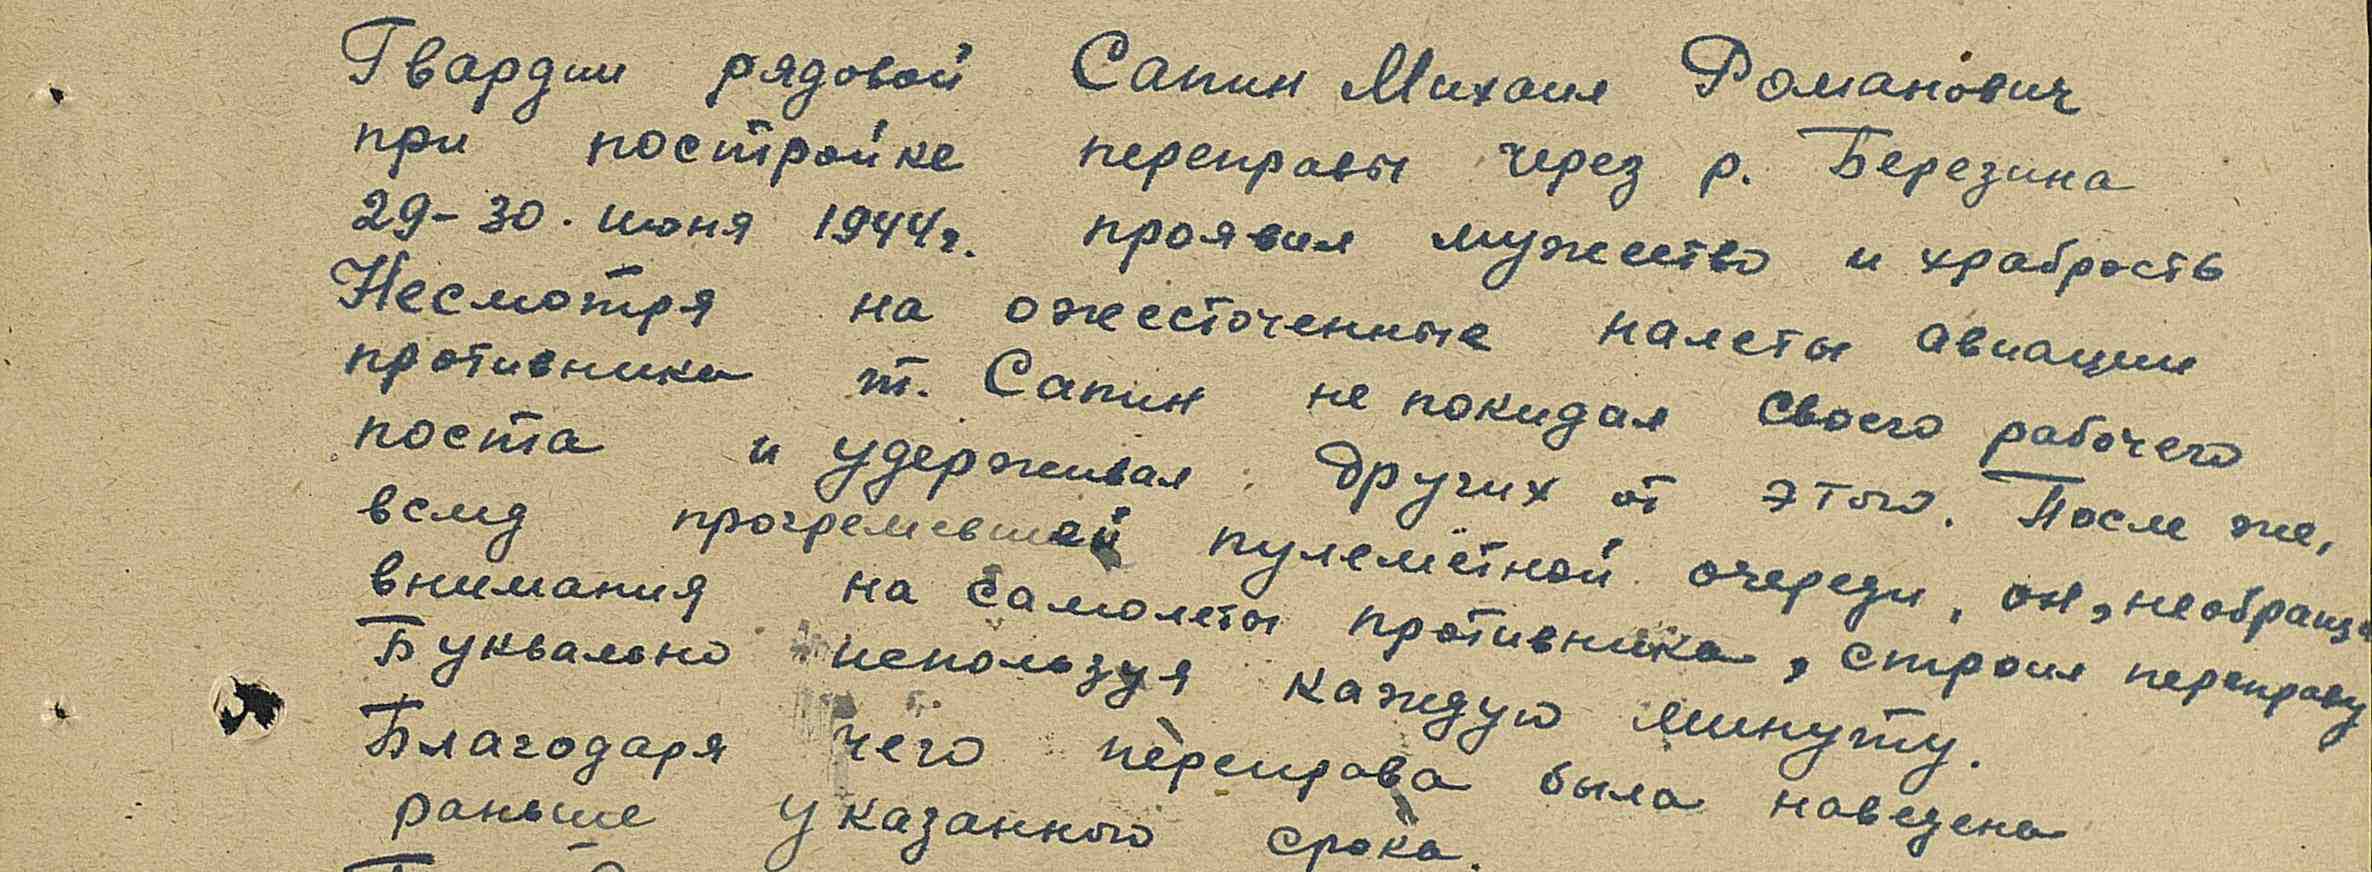 Гвардии рядовой Сапин Михаил Романович
при постройке переправы через р. Березина
29-30. июня 1944г. проявил мужество и храбрость
Несмотря на ожесточенные налеты авиации
противника т. Сапин не покидал своего рабочего
поста и удерживал других от этого. После же,
вслед прогремевшей пулемётной очереди, он, необращая
внимания на самолеты противника, строил переправу
Буквально используя каждую минуту.
Благодаря чего переправа была наведена
раньше указанного срока.